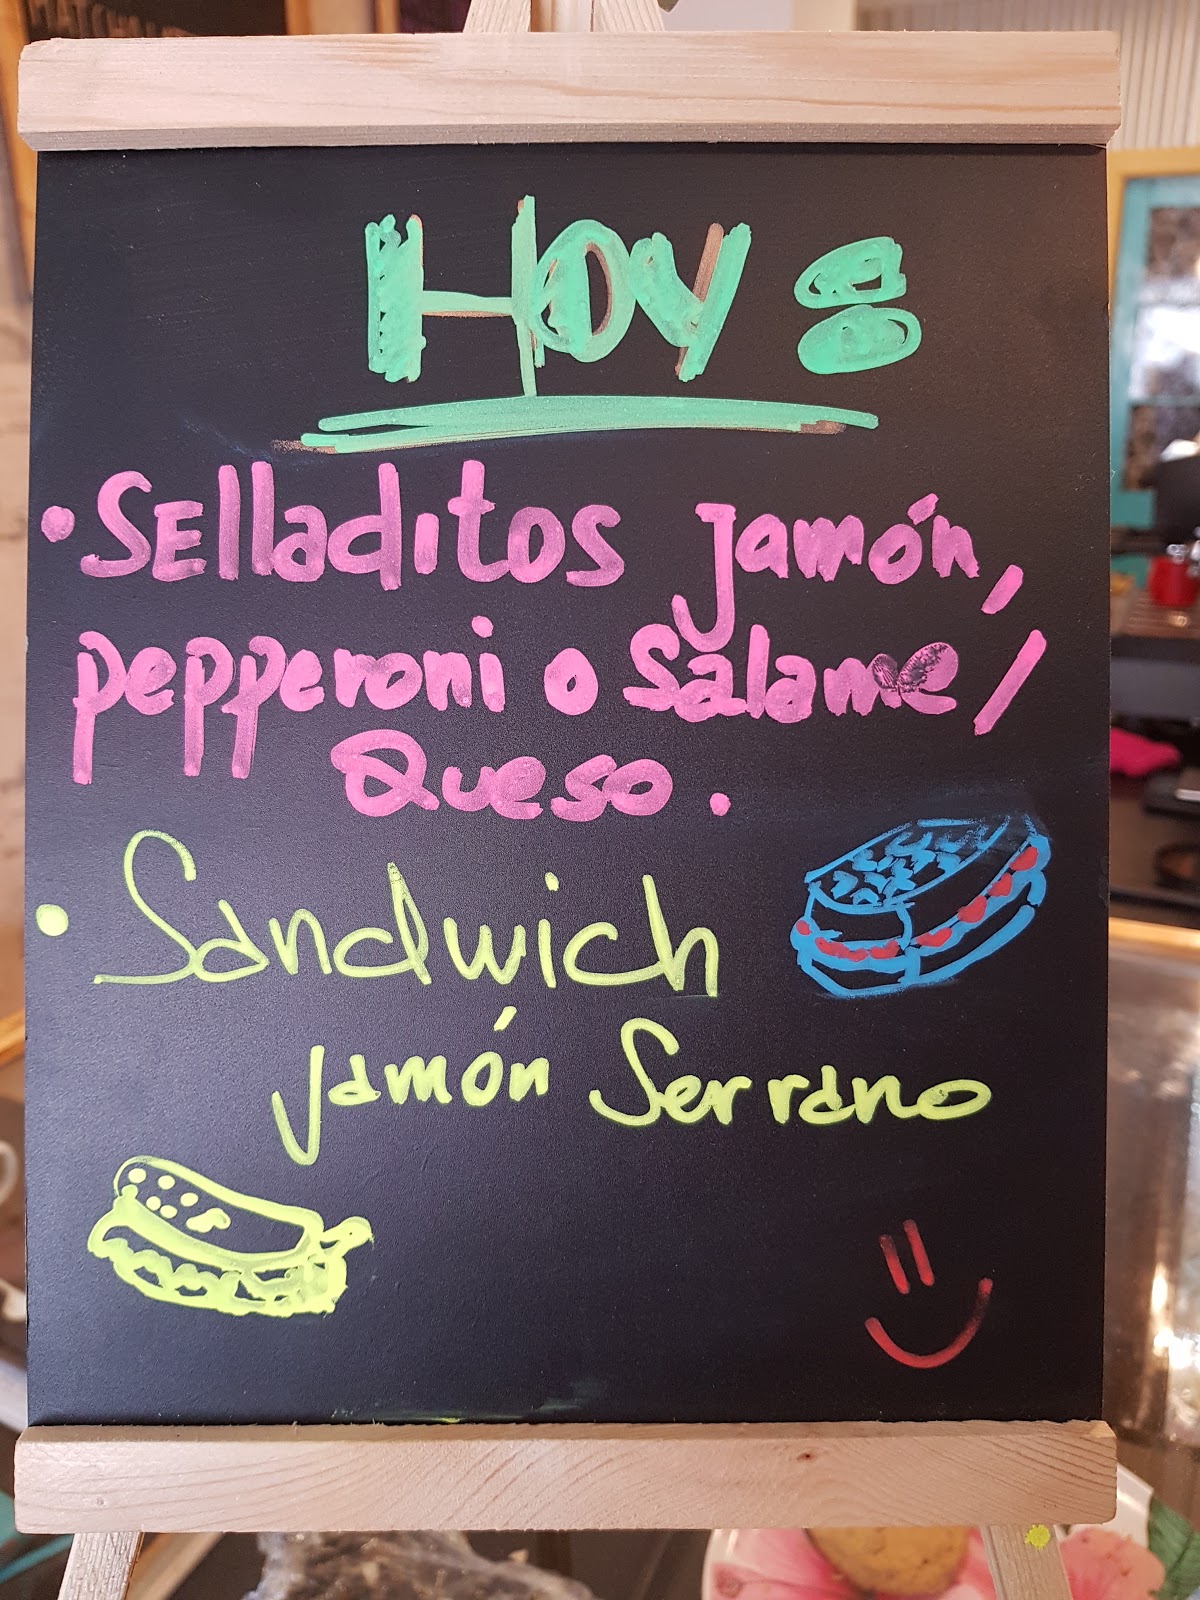 HOY:
• Selladitos jamón,
pepperoni o Salame /
Queso.
• Sandwich
jamón Serrano